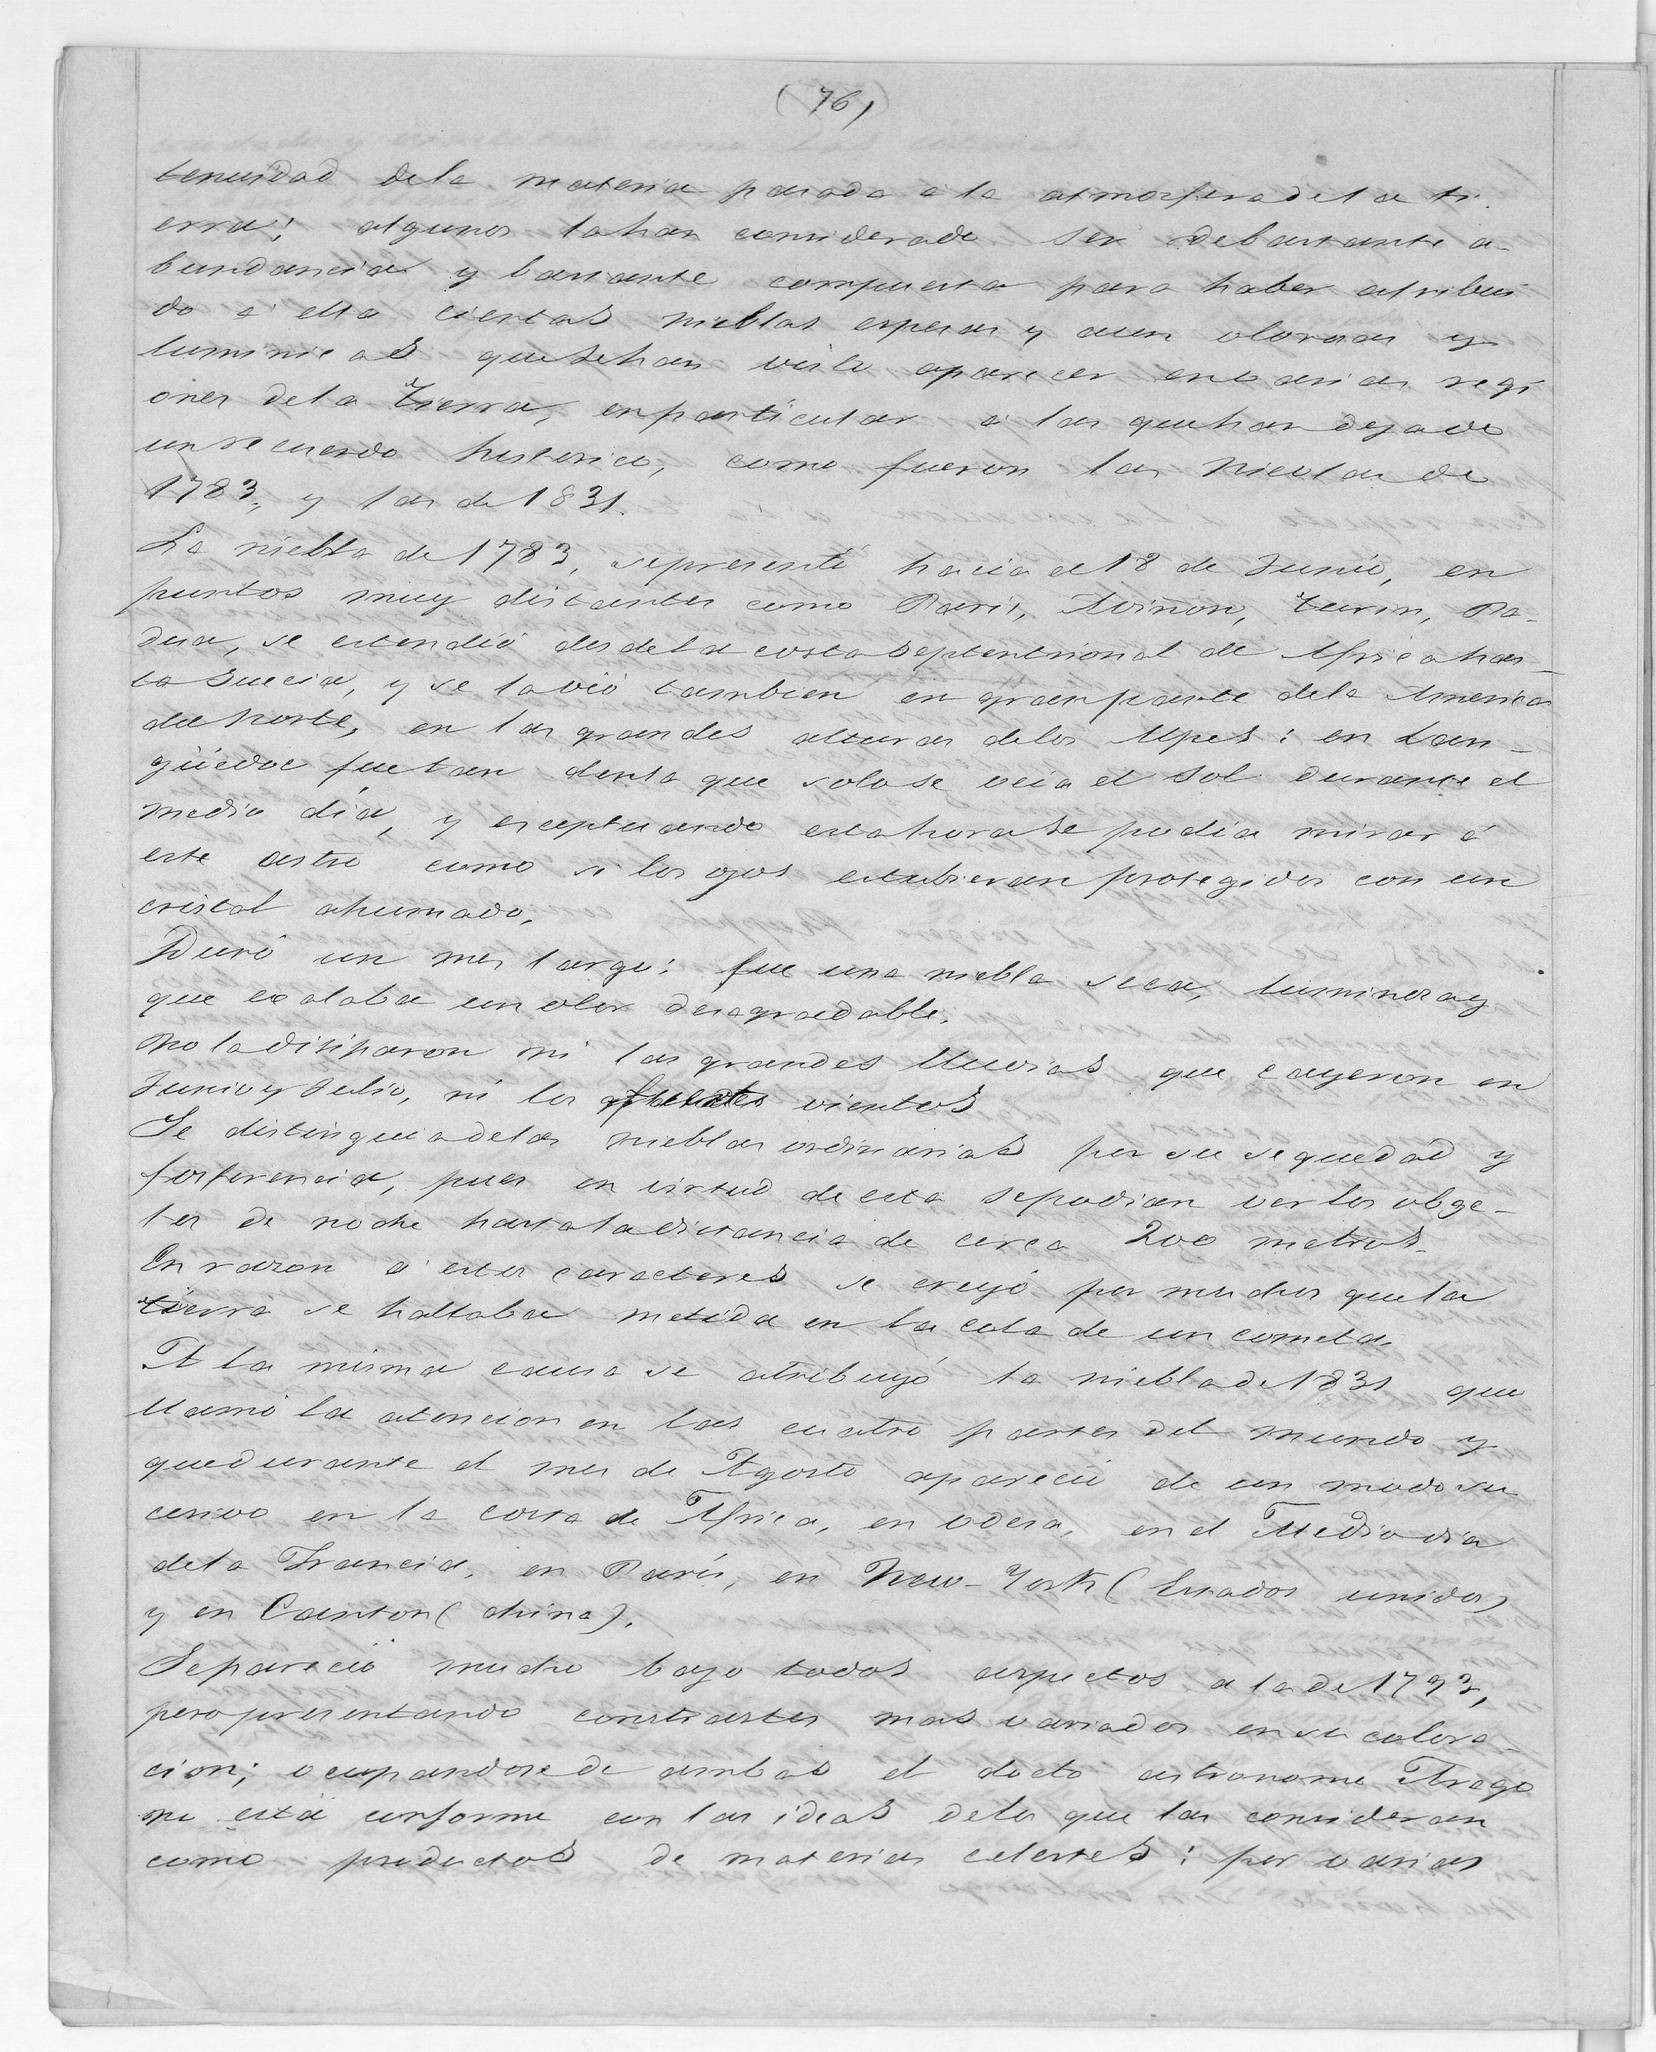 (76)
tenuidad dela materia pasada á la atmosfera de la ti
erra; algunos la han considerado ser de bastante a-
bundancia y bastante compuesta para haber atribui
do á ella ciertas nieblas espesas y aun olorosas y
luminicas que se han visto aparecer en varias regi
ones dela Tierra, en particular á las que han dejado
un recuerdo historico, como fueron las nieblas de
1783, y las de 1831.
La niebla de 1783, se presentó hacia el 18 de Junio, en
puntos muy distantes como Paris, Aviñon, Turin, Pa-
dua, se estendió desde la costa septentrional de Africa has-
ta Suecia, y se la vió tambien en gran parte dela America
del norte, en las grandes alturas delos Alpes: en Lan-
güedoc fue tan densa que solo se veia el sol durante el
medio día, y esceptuando esta hora se podia mirar á
este astro como si los ojos estubieran protegidos con un
cristal ahumado.
Duró un mes largo: fue una niebla seca, luminosa y
que exalaba un olor desagradable.
No la disiparon ni las grandes lluvias que cayeron en
Junio y Julio, ni los fuertes vientos
Se distinguia delas nieblas ordinarias por su sequedad y
fosforencia, pues en virtud de esta se podian ver los obge-
tos de noche hasta la distancia de cerca 200 metros.
En razon á estos caracteres se creyó por muchos que la
tierra se hallaba metida en la cola de un cometa.
A la misma causa se atribuyó la niebla de 1831 que
llamó la atencion en las cuatro partes del mundo y
que durante el mes de Agosto apareció de un modo su
cesivo en la costa de Africa, en Odesa, en el Mediodia
dela Francia, en Paris, en New-York (Estados unidos)
y en Canton (china).
Se pareció mucho bajo todos aspectos a la de 1793,
pero presentando contrastes mas variados en su colora-
cion; ocupandose de ambas el docto astronomo Arago
no está conforme con las ideas delos que las consideran
como productos de materias celestes: por varias